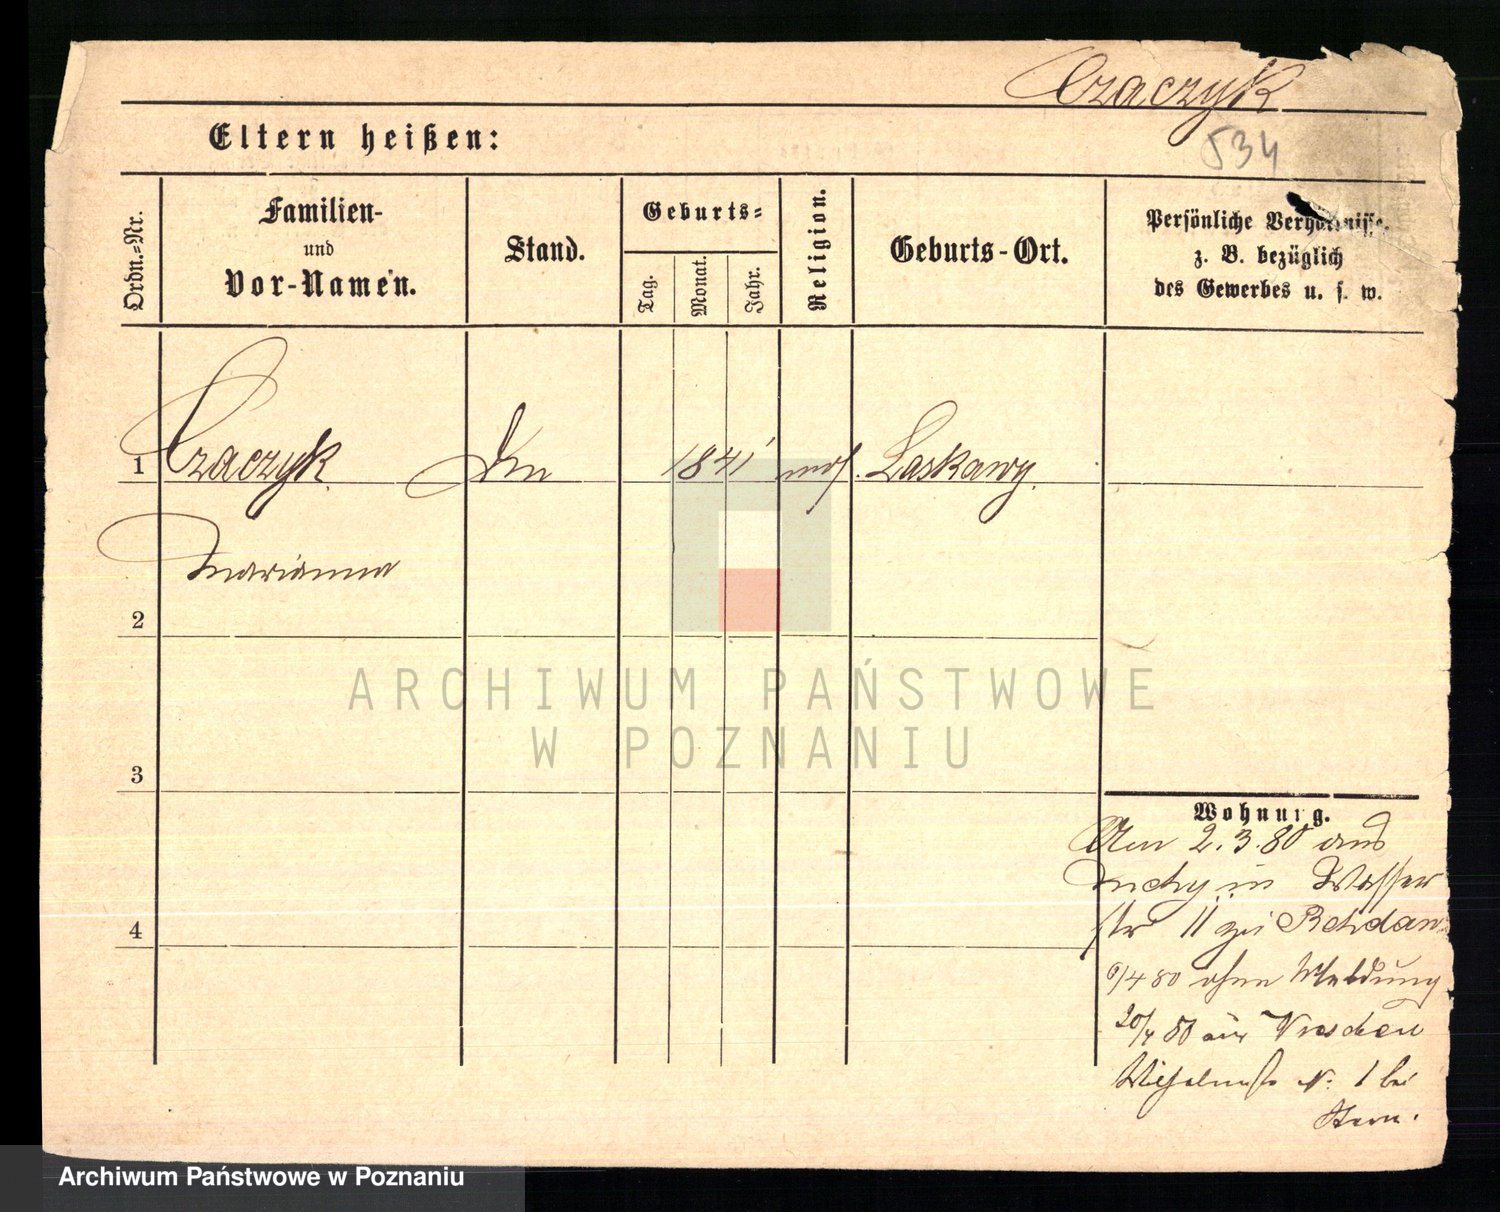 Czaczyk
534
Eltern heißen:
Ordn.-Nr.
Familien-
und
Vor-Namen.
Stand.
Geburts-
Tag.
Monat.
Jahr.
Religion.
Geburts-Ort.
Persönliche Verhältnisse.
z. B. bezüglich
des Gewerbes u. s. w.
1 Czaczyk 1841 mos. Laskawy.
Marianna
2
3
4
Wohnung.
2.3.80 aus
in Wasser
str 11 zu
6/4 80 ohne Meldung
20/4 80 aus
N. 1 bei
Stern.
ARCHIWUM PAŃSTWOWE
W POZNANIU
Archiwum Państwowe w Poznaniu